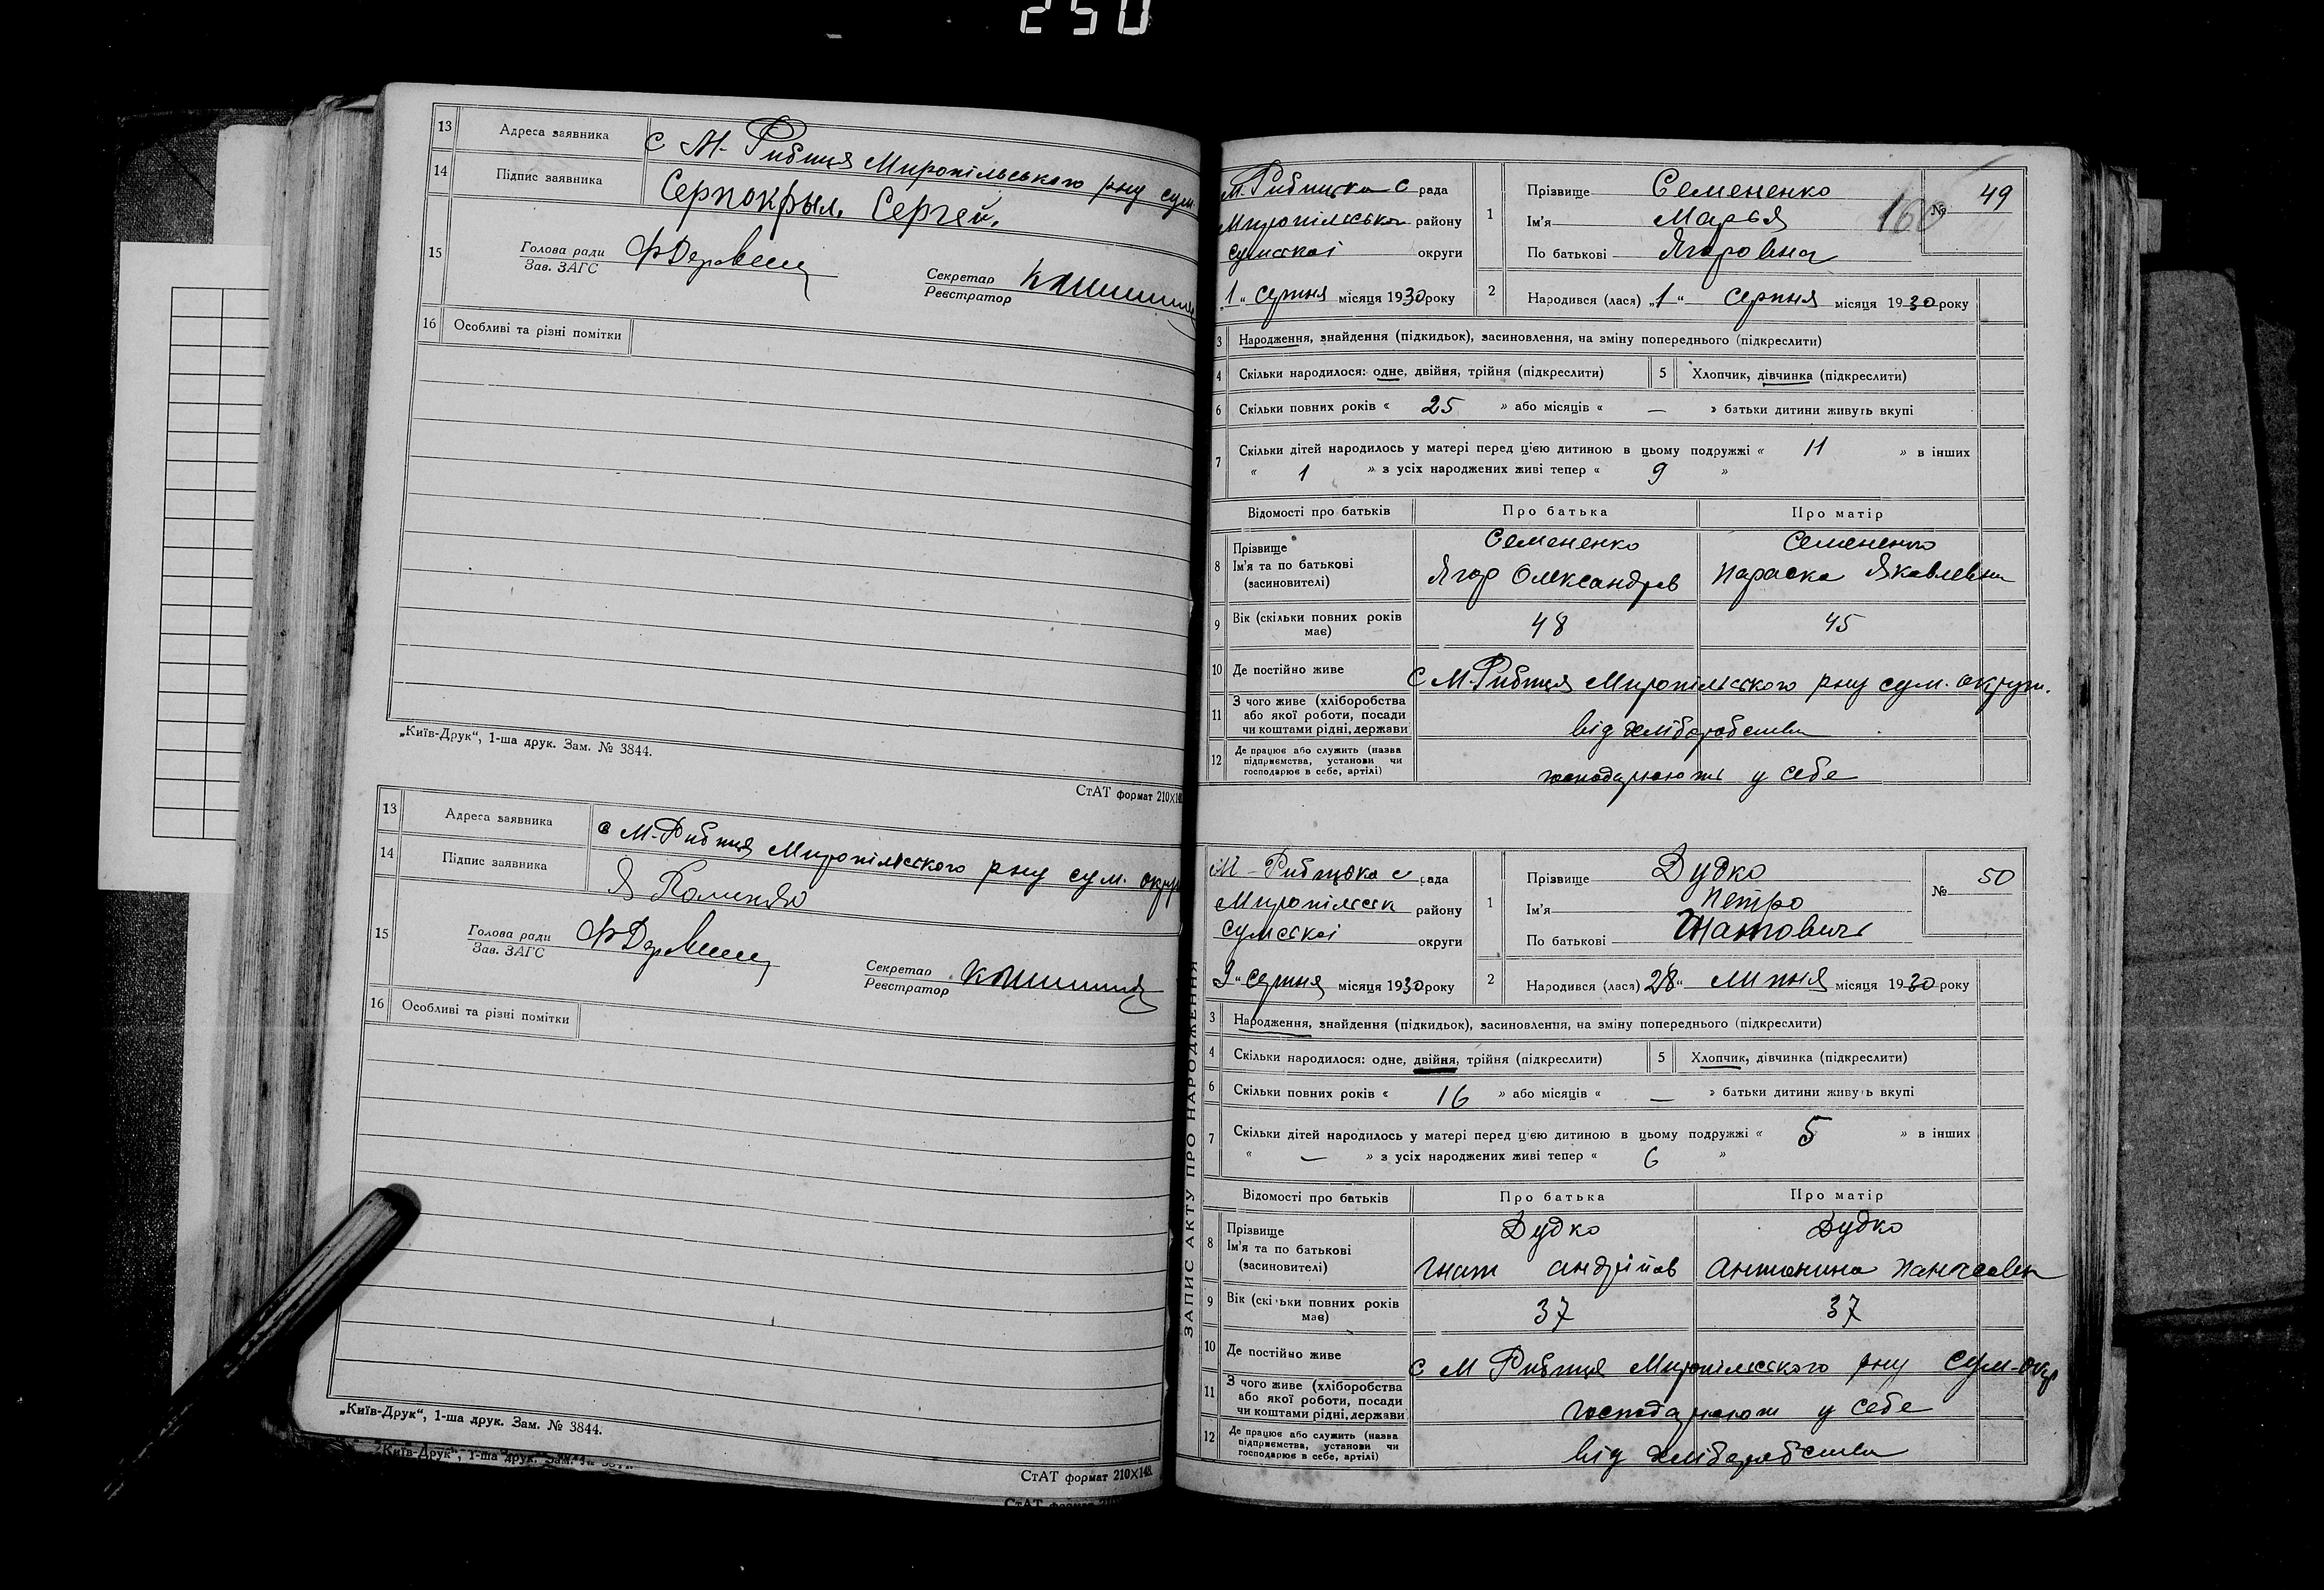 250
13 Адреса заявника С М-Рибиця Миропільського рну сум.
14 Підпис заявника Серпокрыл Сергей.
15 Голова ради
Зав. ЗАГС
Секретар
Реєстратор
16 Особливі та різні помітки
„Київ-Друк“, 1-ша друк. Зам. № 3844.
СтАТ формат 210×148
13 Адреса заявника с М-Рибиця Миропільського рну сум. окру
14 Підпис заявника Я
15 Голова ради
Зав. ЗАГС
Секретар
Реєстратор
16 Особливі та різні помітки
„Київ-Друк“, 1-ша друк. Зам. № 3844.
СтАТ формат 210×148.
„Київ-Друк“, 1-ша друк. Зам. №
М. Рибицька с рада
Миропільськ району
сумської округи
„1“ серпня місяця 1930 року
1 Прізвище Семененко
Ім'я Марья
По батькові Ягоровна
160
№ 49
2 Народився (лася) „1“ серпня місяця 1930 року
3 Народження, знайдення (підкидьок), засиновлення, на зміну попереднього (підкреслити)
4 Скільки народилося: одне, двійня, трійня (підкреслити) 5 Хлопчик, дівчинка (підкреслити)
6 Скільки повних років « 25 » або місяців « — » батьки дитини живуть вкупі
7 Скільки дітей народилось у матері перед цією дитиною в цьому подружжі « 11 » в інших
« 1 » з усіх народжених живі тепер « 9 »
Відомості про батьків Про батька Про матір
8 Прізвище
Ім'я та по батькові
(засиновителі)
Семененко
Ягор Олександров
Семененко
Параска Яковлевна
9 Вік (скільки повних років має) 48 45
10 Де постійно живе С М-Рибиця Миропільського рну сум. округи.
11 З чого живе (хліборобства
або якої роботи, посади
чи коштами рідні, держави
від хліборобства
12 Де працює або служить (назва
підприємства, установи чи
господарює в себе, артілі)
господарюють у себе
ЗАПИС АКТУ ПРО НАРОДЖЕННЯ
М-Рибицька с рада
Миропільськ району
сумської округи
„9“ серпня місяця 1930 року
1 Прізвище Дудко
Ім'я Петро
По батькові Гнатович
№ 50
2 Народився (лася) „28“ липня місяця 1930 року
3 Народження, знайдення (підкидьок), засиновлення, на зміну попереднього (підкреслити)
4 Скільки народилося: одне, двійня, трійня (підкреслити) 5 Хлопчик, дівчинка (підкреслити)
6 Скільки повних років « 16 » або місяців « — » батьки дитини живуть вкупі
7 Скільки дітей народилось у матері перед цією дитиною в цьому подружжі « 5 » в інших
« — » з усіх народжених живі тепер « 6 »
Відомості про батьків Про батька Про матір
8 Прізвище
Ім'я та по батькові
(засиновителі)
Дудко
Гнат андрійов
Дудко
Антонина
9 Вік (скільки повних років має) 37 37
10 Де постійно живе С М Рибиця Миропільського рну сум-окр
11 З чого живе (хліборобства
або якої роботи, посади
чи коштами рідні, держави
господарюют у себе
12 Де працює або служить (назва
підприємства, установи чи
господарює в себе, артілі)
від хліборобства